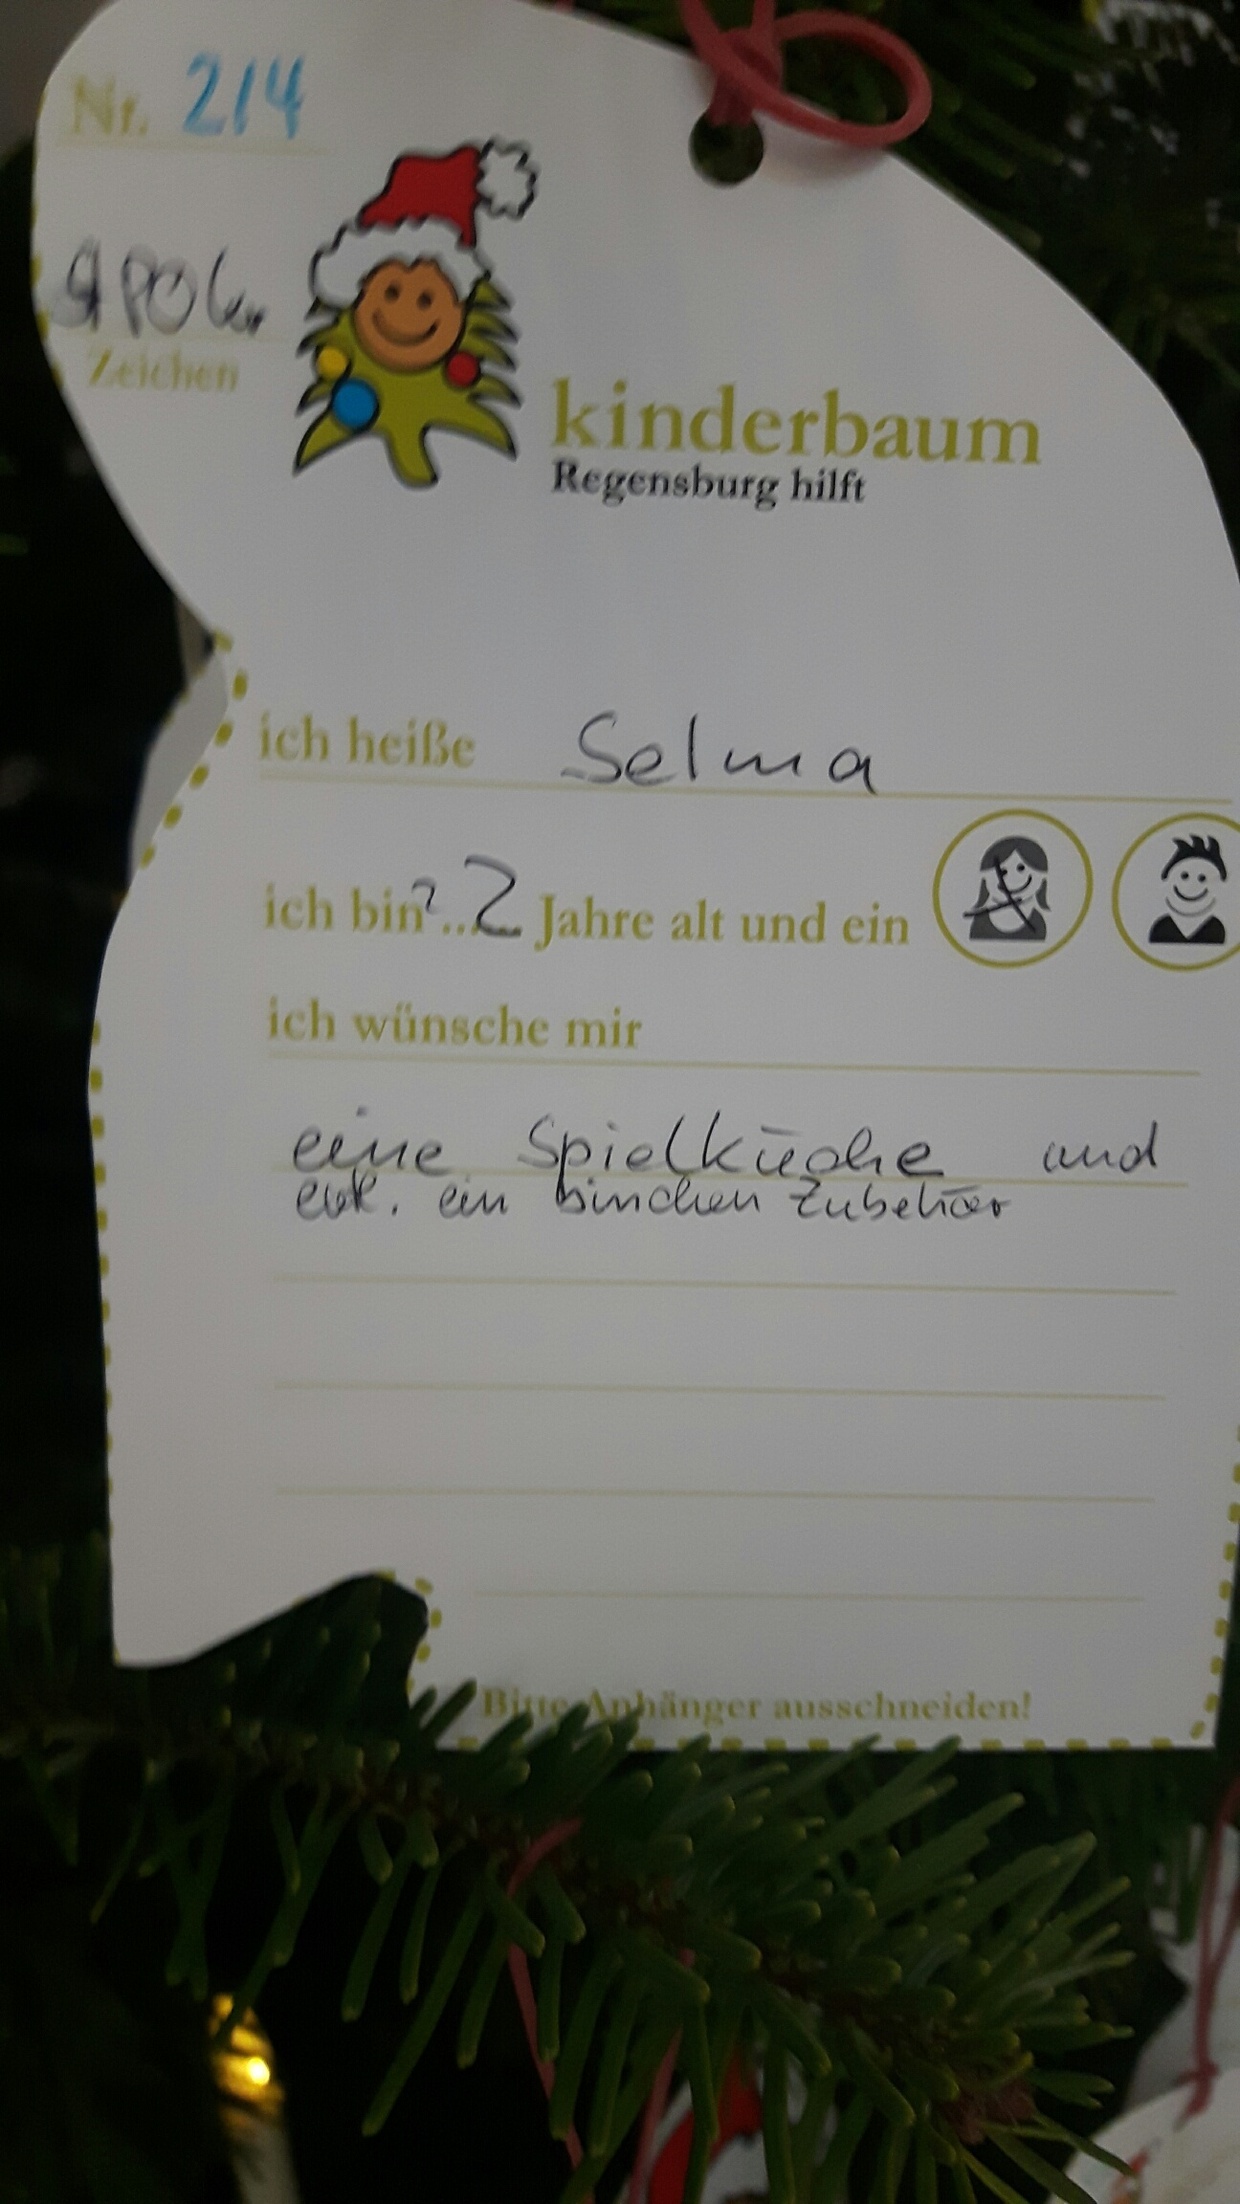 Nr. 214
Zeichen
kinderbaum
Regensburg hilft
ich heiße Selma
ich bin ? .. 2 Jahre alt und ein
ich wünsche mir
eine Spielküche und
evt. ein binchen Zubehör
Bitte Anhänger ausschneiden!